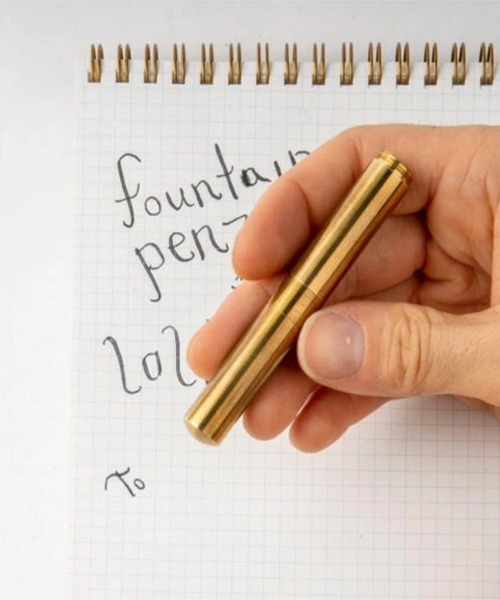 fountain
pen
lol
To